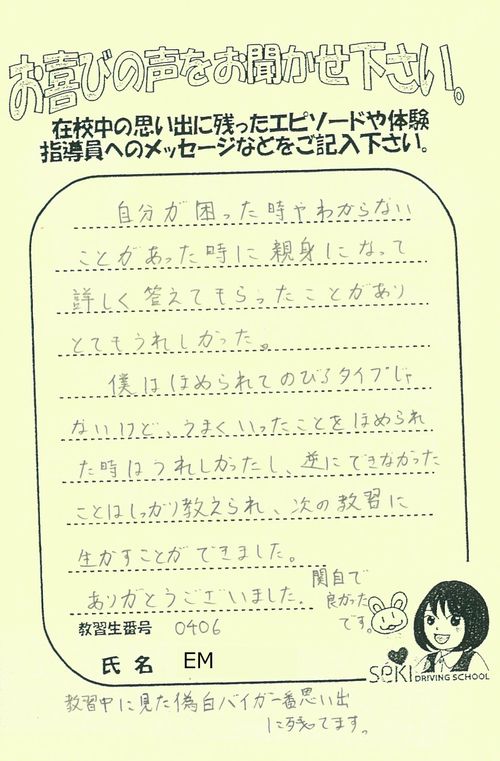 お喜びの声をお聞かせ下さい。
在校中の思い出に残ったエピソードや体験
指導員へのメッセージなどをご記入下さい。
自分が困った時やわからない
ことがあった時に親身になって
詳しく答えてもらったことがあり
とてもうれしかった。
僕はほめられてのびるタイプじゃ
ないけど、うまくいったことをほめられ
た時はうれしかったし、逆にできなかった
ことはしっかり教えられ、次の教習に
生かすことができました。
ありがとうございました。
関自で
良かった
です。
教習生番号 0406
氏名 EM
SEKI DRIVING SCHOOL
教習中に見た偽白バイが一番思い出
に残ってます。